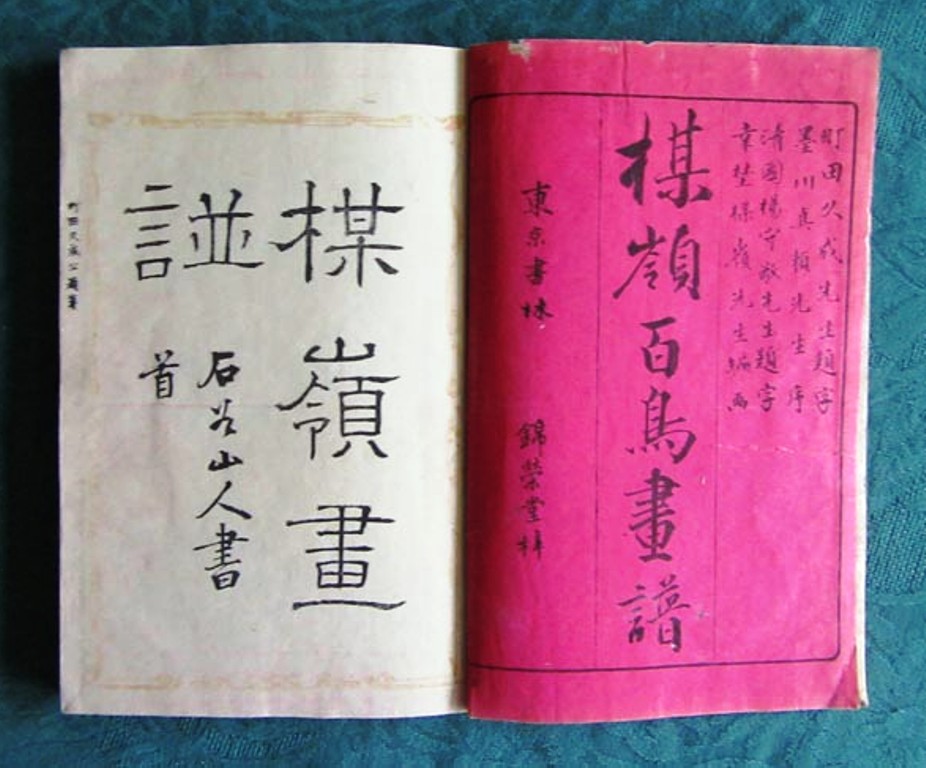 町田久成先生題字
墨川真頼先生序
清國楊守敬先生題字
幸埜楳嶺先生編画
楳嶺百鳥畫譜
東京書林 錦榮堂梓
楳嶺畫
諩
石谷山人書
首
町田久成公